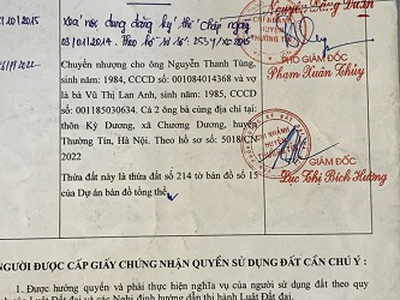 Xóa nội dung đăng ký thế chấp ngày
03/01/2014. Theo hồ sơ số: 2534/XC2015
Nguyễn Đăng Duẩn
CHI NHÁNH
HUYỆN
THƯỜNG TÍN
PHÓ GIÁM ĐỐC
Phạm Xuân Thủy
Chuyển nhượng cho ông Nguyễn Thanh Tùng,
sinh năm: 1984, CCCD số: 001084014368 và vợ
là bà Vũ Thị Lan Anh, sinh năm: 1985, CCCD
số: 001185030634. Cả 2 ông bà cùng địa chỉ tại:
thôn Kỳ Dương, xã Chương Dương, huyện
Thường Tín, Hà Nội. Theo hồ sơ số: 5018/CN
2022
CHI NHÁNH
HUYỆN
GIÁM ĐỐC
Lục Thị Bích Hường
Thửa đất này là thửa đất số 214 tờ bản đồ số 15
của Dự án bản đồ tổng thể.
NGƯỜI ĐƯỢC CẤP GIẤY CHỨNG NHẬN QUYỀN SỬ DỤNG ĐẤT CẦN CHÚ Ý :
1. Được hưởng quyền và phải thực hiện nghĩa vụ của người sử dụng đất theo quy
của Luật Đất đai và các Nghị định hướng dẫn thi hành Luật Đất đai.